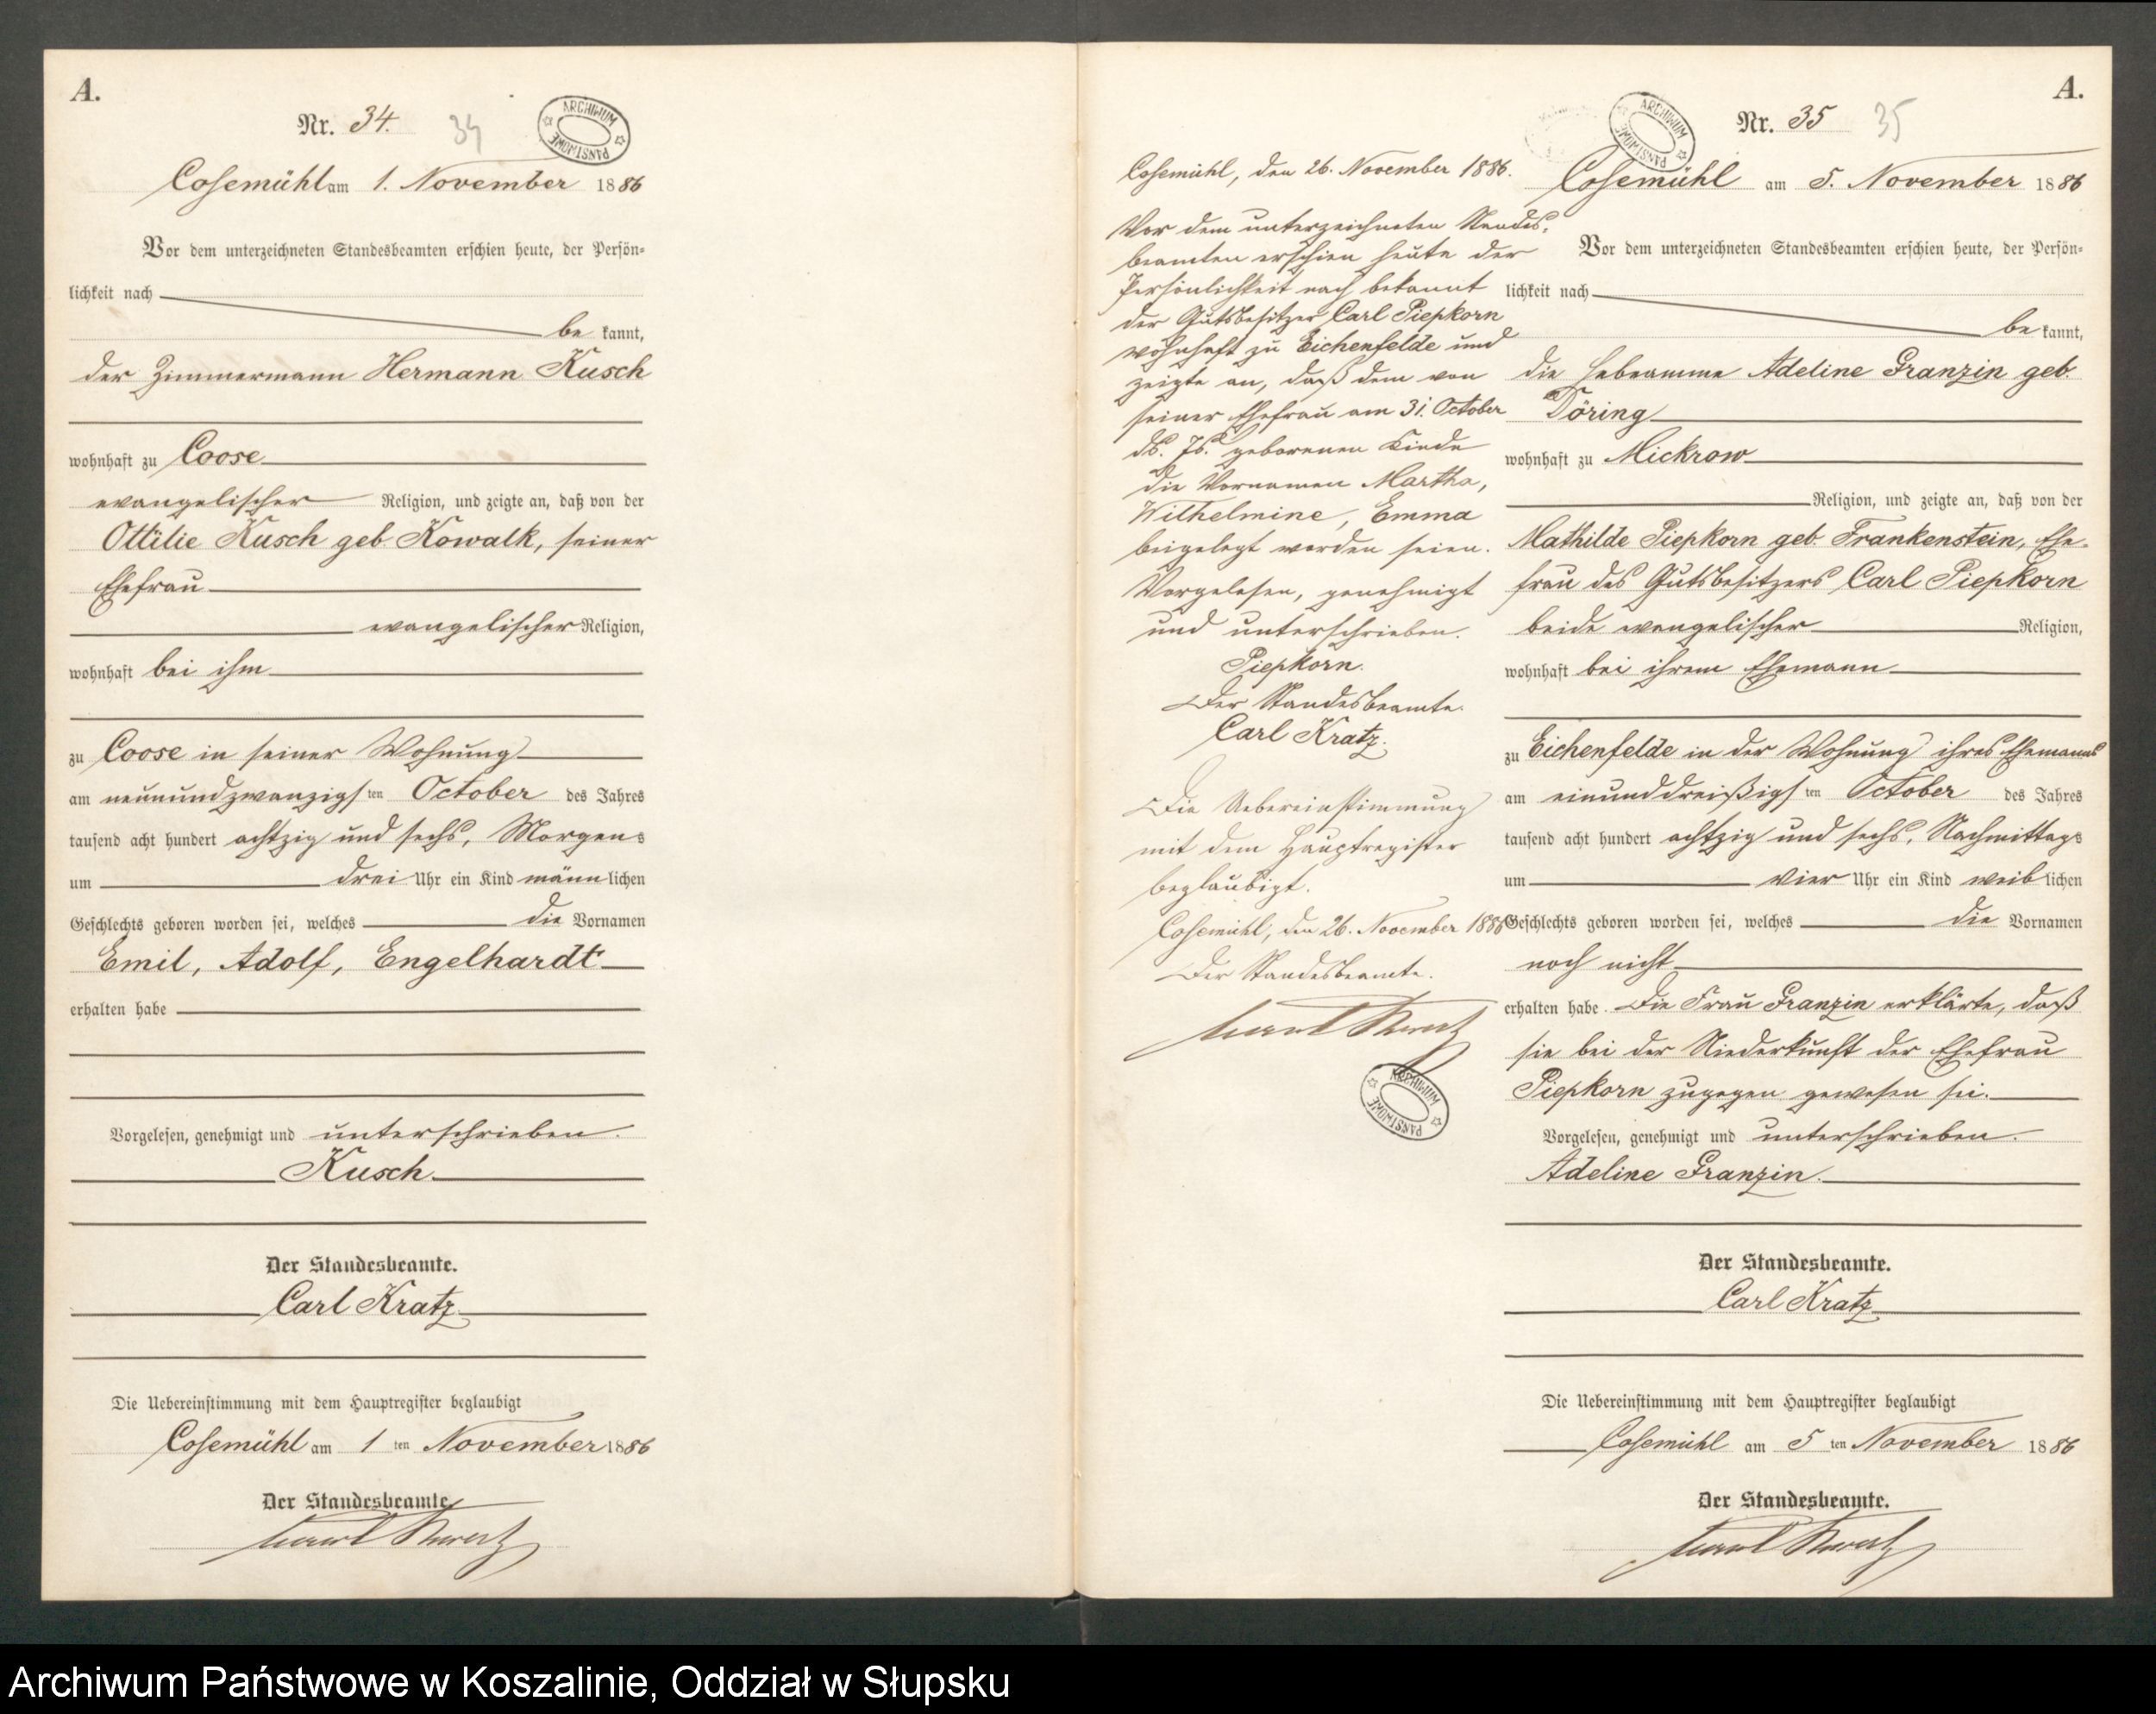 A.
Nr. 34. 34
ARCHIWUM PAŃSTWOWE
Cosemühl am 1. November 1886
Vor dem unterzeichneten Standesbeamten erschien heute, der Persön=
lichkeit nach
be kannt,
der Zimmermann Hermann Kusch
wohnhaft zu Coose
evangelischer Religion, und zeigte an, daß von der
Ottilie Kusch geb. Kowalk, seiner
Ehefrau
evangelischer Religion,
wohnhaft bei ihm
zu Coose in seiner Wohnung
am neunundzwanzigsten October des Jahres
tausend acht hundert achtzig und sechs, Morgens
um drei Uhr ein Kind männlichen
Geschlechts geboren worden sei, welches die Vornamen
Emil, Adolf, Engelhardt
erhalten habe
Vorgelesen, genehmigt und unterschrieben.
Kusch.
Der Standesbeamte.
Carl Kratz
Die Uebereinstimmung mit dem Hauptregister beglaubigt
Cosemühl am 1 ten November 1886
Der Standesbeamte.
Carl Kratz
Cosemühl, den 26. November 1886.
Vor dem unterzeichneten Standes-
beamten erschien heute der
Persönlichkeit nach bekannt
der Gutsbesitzer Carl Piepkorn
wohnhaft zu Eichenfelde und
zeigte an, daß dem von
seiner Ehefrau am 31. October
ds. Js. geborenen Kinde
die Vornamen Martha,
Wilhelmine, Emma
beigelegt worden seien.
Vorgelesen, genehmigt
und unterschrieben.
Piepkorn.
Der Standesbeamte.
Carl Kratz.
Die Uebereinstimmung
mit dem Hauptregister
beglaubigt.
Cosemühl, den 26. November 1886
Der Standesbeamte.
Carl Kratz
ARCHIWUM PAŃSTWOWE
A.
ARCHIWUM PAŃSTWOWE
Nr. 35 35
Cosemühl am 5. November 1886
Vor dem unterzeichneten Standesbeamten erschien heute, der Persön=
lichkeit nach
be kannt,
die Hebeamme Adeline Granzin geb.
Döring
wohnhaft zu Mickrow
Religion, und zeigte an, daß von der
Mathilde Piepkorn geb. Frankenstein, Ehe-
frau des Gutsbesitzers Carl Piepkorn
beide evangelischer Religion,
wohnhaft bei ihrem Ehemann
zu Eichenfelde in der Wohnung ihres Ehemanns
am einunddreißigsten October des Jahres
tausend acht hundert achtzig und sechs, Nachmittags
um vier Uhr ein Kind weiblichen
Geschlechts geboren worden sei, welches die Vornamen
noch nicht
erhalten habe. Die Frau Granzin erklärte, daß
sie bei der Niederkunft der Ehefrau
Piepkorn zugegen gewesen sei.
Vorgelesen, genehmigt und unterschrieben.
Adeline Granzin.
Der Standesbeamte.
Carl Kratz
Die Uebereinstimmung mit dem Hauptregister beglaubigt
Cosemühl am 5 ten November 1886
Der Standesbeamte.
Carl Kratz
Archiwum Państwowe w Koszalinie, Oddział w Słupsku